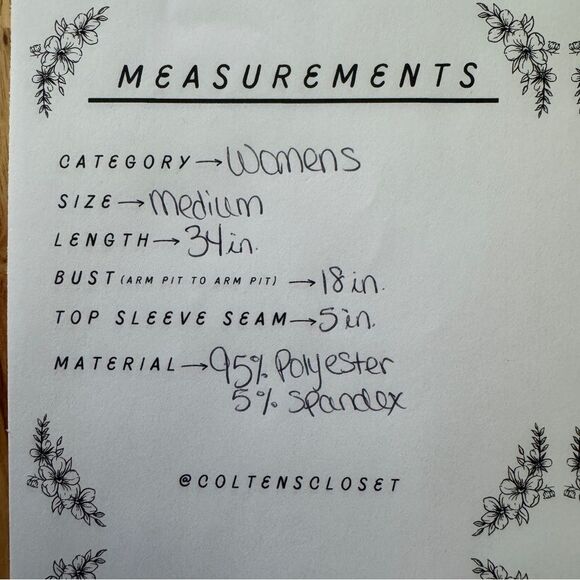 MEASUREMENTS
CATEGORY→Womens
SIZE→Medium
LENGTH→34in.
BUST (ARM PIT TO ARM PIT)→18in.
TOP SLEEVE SEAM→5in.
MATERIAL→95% Polyester
5% Spandex
@COLTENSCLOSET